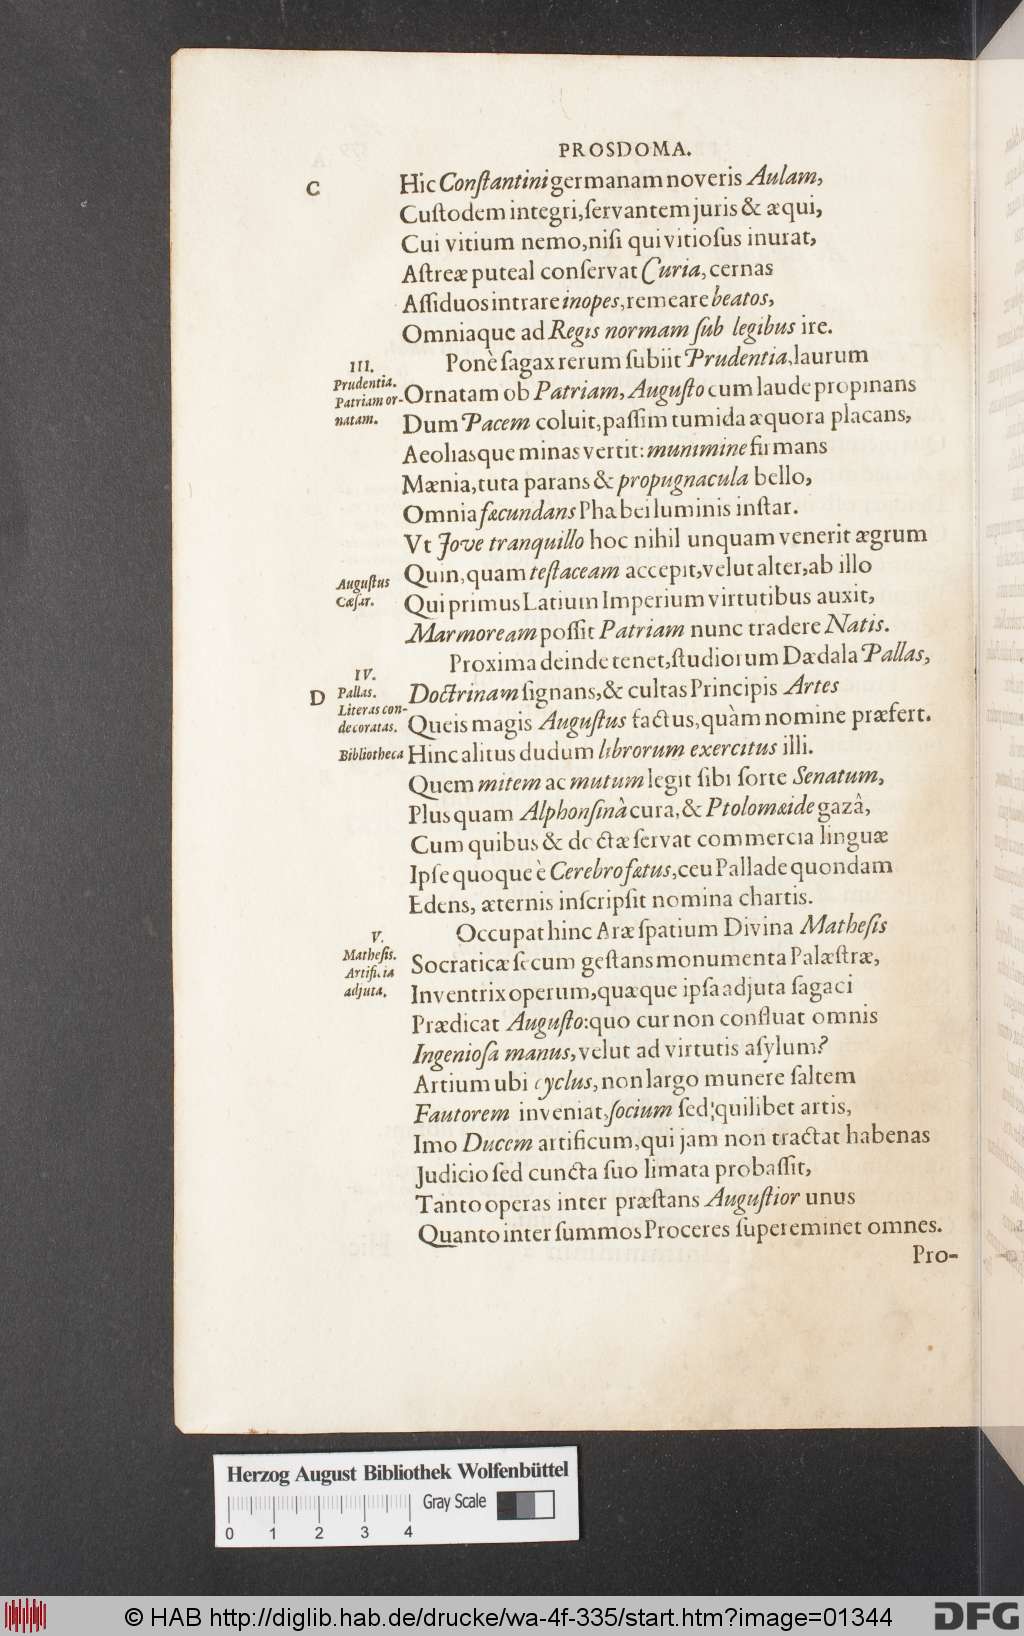 PROSDOMA.
C
Hic Conſtantini germanam noveris Aulam,
Cuſtodem integri, ſervantem juris & æqui,
Cui vitium nemo, niſi qui vitioſus inurat,
Aſtreæ puteal conſervat Curia, cernas
Aſſiduos intrare inopes, remeare beatos,
Omniaque ad Regis normam ſub legibus ire.
III.
Prudentia.
Patriam or-
natam.
Ponè ſagax rerum ſubiit Prudentia, laurum
Ornatam ob Patriam, Auguſto cum laude propinans
Dum Pacem coluit, paſſim tumida æquora placans,
Aeoliasque minas vertit: munimine firmans
Mænia, tuta parans & propugnacula bello,
Omnia fæcundans Phæbei luminis inſtar.
Vt Jove tranquillo hoc nihil unquam venerit ægrum
Auguſtus
Cæſar.
Quin, quam teſtaceam accepit, velut alter, ab illo
Qui primus Latium Imperium virtutibus auxit,
Marmoream poſſit Patriam nunc tradere Natis.
IV.
D
Pallas.
Literas con-
decoratas.
Bibliotheca
Proxima deinde tenet, ſtudiorum Dædala Pallas,
Doctrinam ſignans, & cultas Principis Artes
Queis magis Auguſtus factus, quàm nomine præfert.
Hinc alitus dudum librorum exercitus illi.
Quem mitem ac mutum legit ſibi ſorte Senatum,
Plus quam Alphonſinà cura, & Ptolomæide gazâ,
Cum quibus & doctæ ſervat commercia linguæ
Ipſe quoque è Cerebro fætus, ceu Pallade quondam
Edens, æternis inſcripſit nomina chartis.
V.
Matheſis.
Artificia
adjuta.
Occupat hinc Aræ ſpatium Divina Matheſis
Socraticæ ſecum geſtans monumenta Palæſtræ,
Inventrix operum, quæque ipſa adjuta ſagaci
Prædicat Auguſto: quo cur non confluat omnis
Ingenioſa manus, velut ad virtutis aſylum?
Artium ubi cyclus, non largo munere ſaltem
Fautorem inveniat, ſocium ſed quilibet artis,
Imo Ducem artificum, qui jam non tractat habenas
Judicio ſed cuncta ſuo limata probaſſit,
Tanto operas inter præſtans Auguſtior unus
Quanto inter ſummos Proceres ſupereminet omnes.
Pro-
Herzog August Bibliothek Wolfenbüttel
Gray Scale
0 1 2 3 4
© HAB http://diglib.hab.de/drucke/wa-4f-335/start.htm?image=01344
DFG